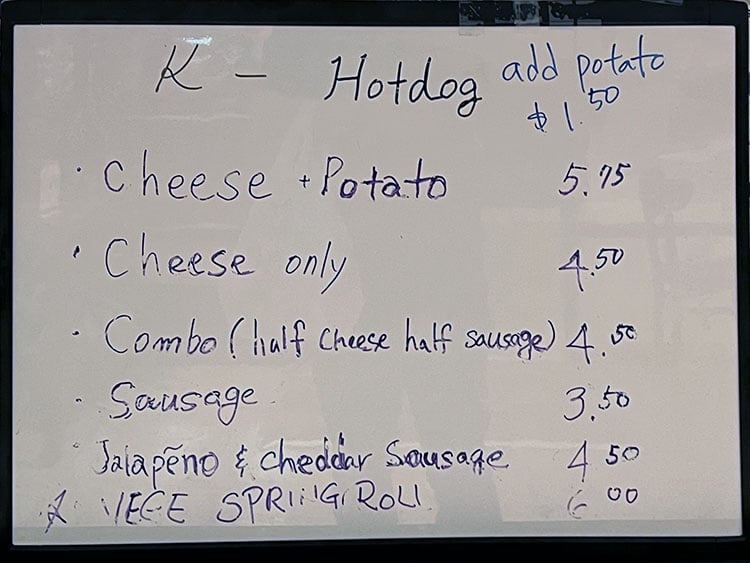 K - Hotdog add potato
$1.50
· Cheese + Potato 5.75
· Cheese only 4.50
· Combo (half cheese half sausage) 4.50
· Sausage 3.50
· Jalapeño & cheddar Sausage 4 50
VEGE SPRING ROLL 6 00